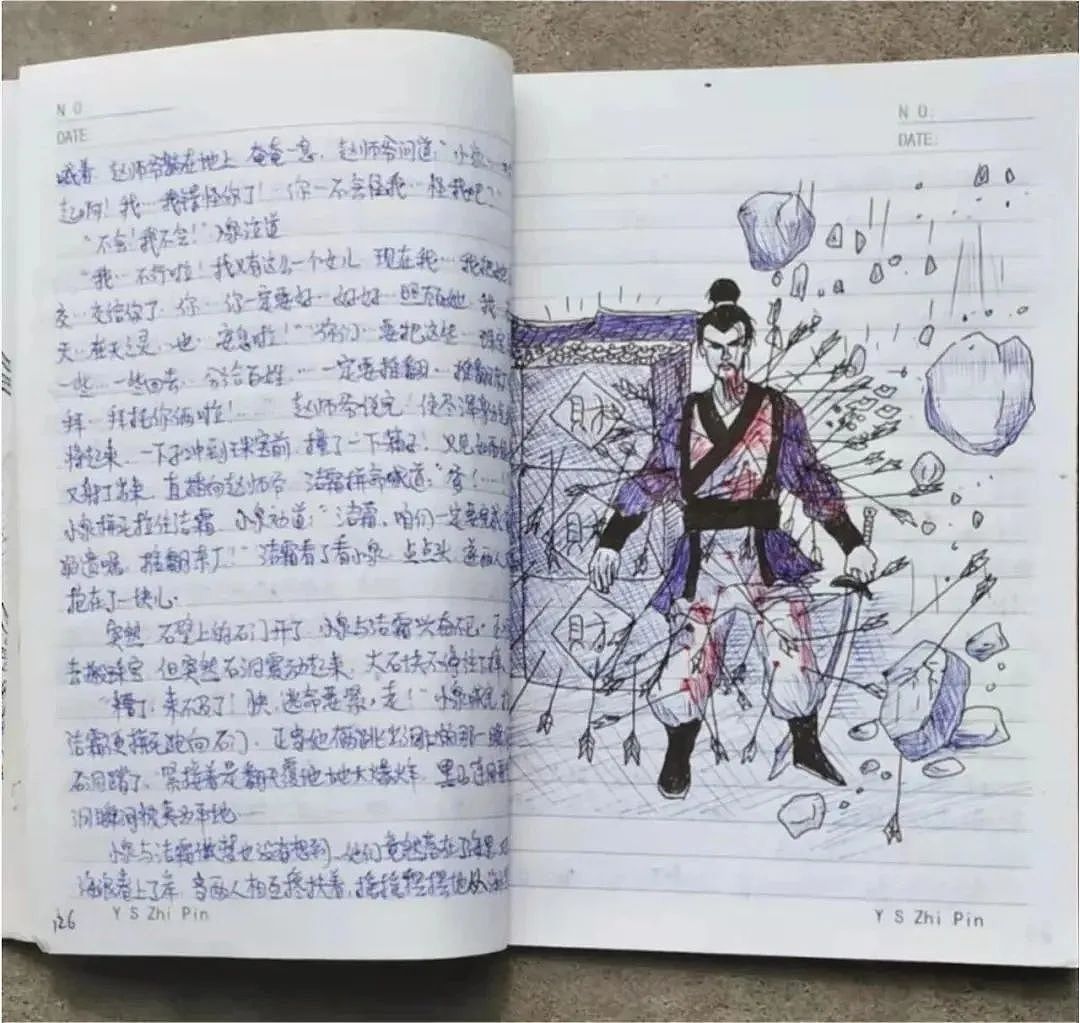 NO
DATE
喊着 赵师爷躺在地上 奄奄一息, 赵师爷问道:"小泉…
起啊! 我…我错怪你了! 你一不会怪我…怪我吧?
"不会! 我不会!" 小泉泣道
"我…不行啦! 我只有这么一个女儿 现在我…我把她
交…交给你了 你…你一定要好…好好…照顾她, 我
天…在天之灵, 也 安息啦!" "你们…要把这些
一些…一些回去, 分给百姓, …一定要推翻…推翻
拜…拜托你俩啦! …… 赵师爷说完, 使尽浑身
站起来, 一下子冲到珠宝前, 撞了一下箱子! 又见
又射了出来, 直插向赵师爷 洁霜拼命喊道:"爹!……
小泉拼死拉住洁霜, 小泉劝道:"洁霜, 咱们一定要
遗嘱, 推翻 !" 洁霜看了看小泉, 点点头, 两人
抱在了一块儿.
突然, 石壁上的石门开了, 小泉与洁霜兴奋
去搬珠宝, 但突然石洞震动起来, 大石块不停往下
"糟了! 来不及了! 快, 逃命要紧, 走!" 小泉
洁霜便拼死跑向石门, 正当他俩跳出洞口的那一
石洞塌了, 紧接着是翻天覆地地大爆炸, 黑
洞瞬间被夷为平地
小泉与洁霜做梦也没有想到, 他们竟然落在了海里
海浪卷上了岸, 当两人相互搀扶着, 摇摇摆摆地从
126
Y S Zhi Pin
NO:
DATE:
財
財
財
Y S Zhi Pin